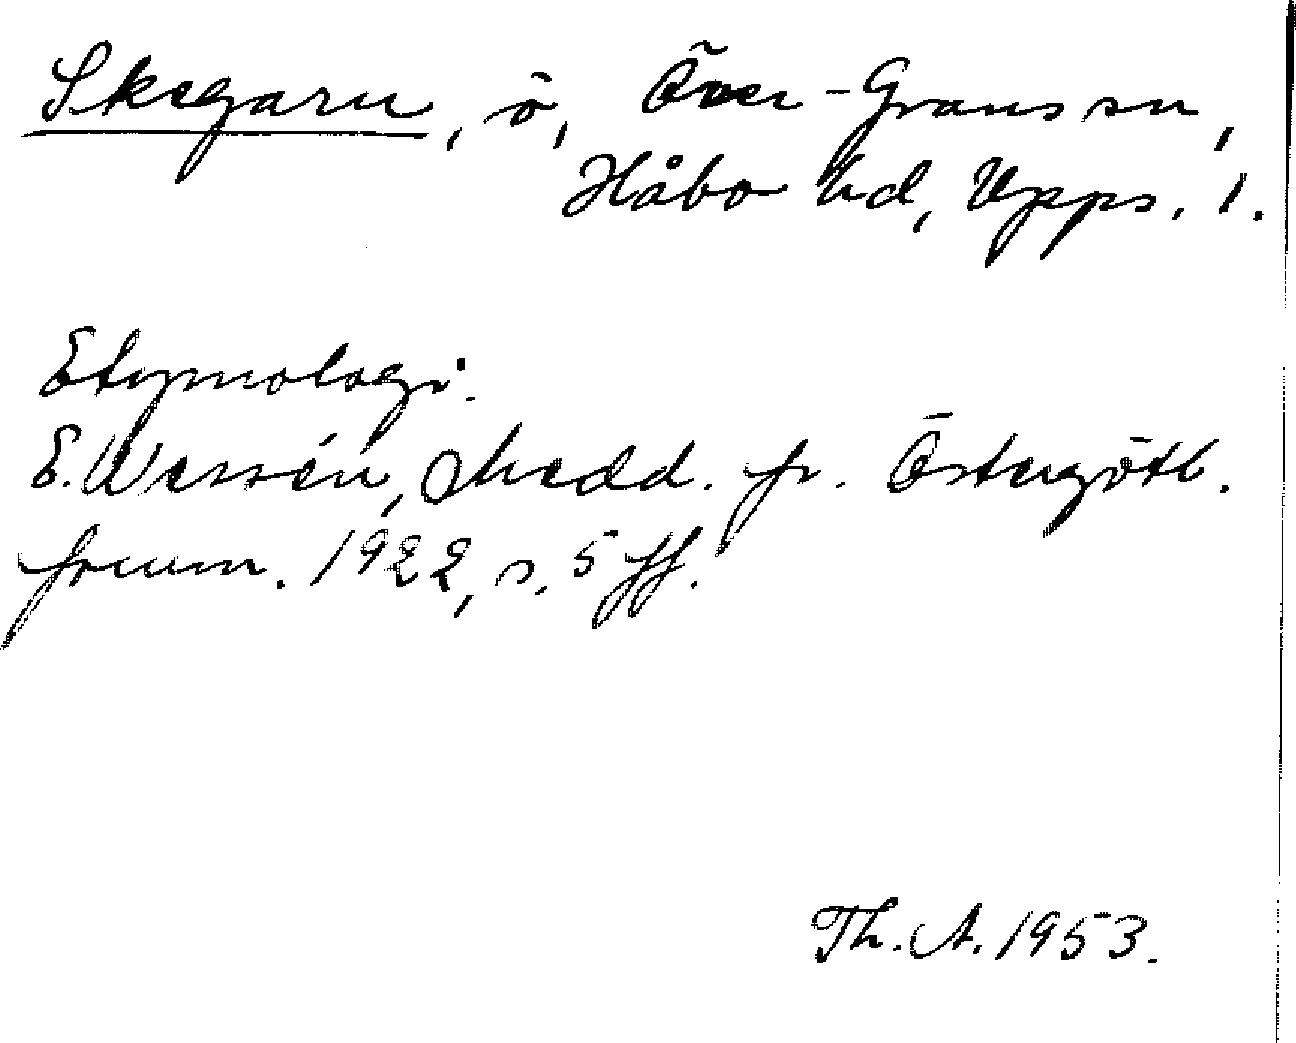 Skegarn, ö, Över-Granssn,
Håbo hd, Upps. l.
Etymologi.
E. Wessén, Medd. fr. Östergötl.
fornm. 1922, s. 5 ff.
Th. A. 1953.